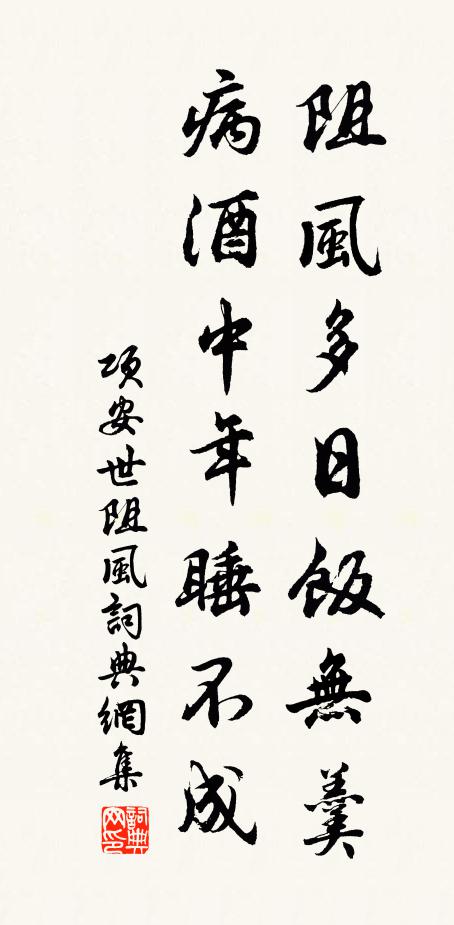 阻風多日飯無羹
病酒中年睡不成
项安世阻風詞典網集
詞典網印